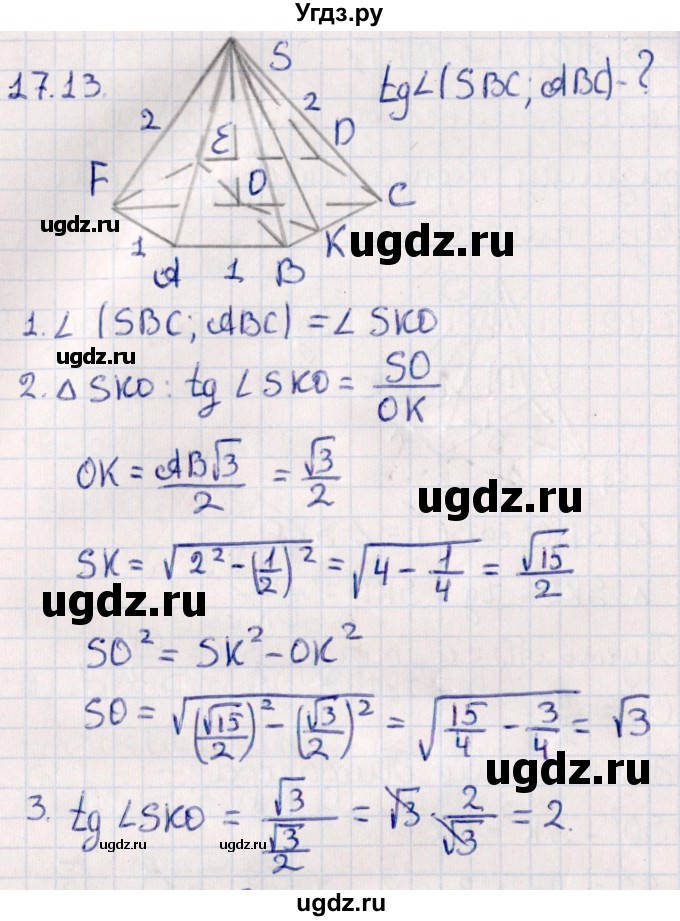 Угдз.ру
17.13.
S
tg∠(SBC; ABC)-?
2
2
E
D
F
O
C
ugdz.ru
ugdz.ru
1
K
A
1
B
1. ∠ (SBC; ABC) = ∠ SKO
ugdz.ru
2. △ SKO: tg ∠ SKO = SO/OK
OK = AB√3/2 = √3/2
ugdz.ru
SK = √(2² - (1/2)²) = √(4 - 1/4) = √15/2
ugdz.ru
SO² = SK² - OK²
SO = √((√15/2)² - (√3/2)²) = √(15/4 - 3/4) = √3
ugdz.ru
3. tg ∠SKO = √3/(√3/2) = √3 · 2/√3 = 2.
ugdz.ru
ugdz.ru
ugdz.ru